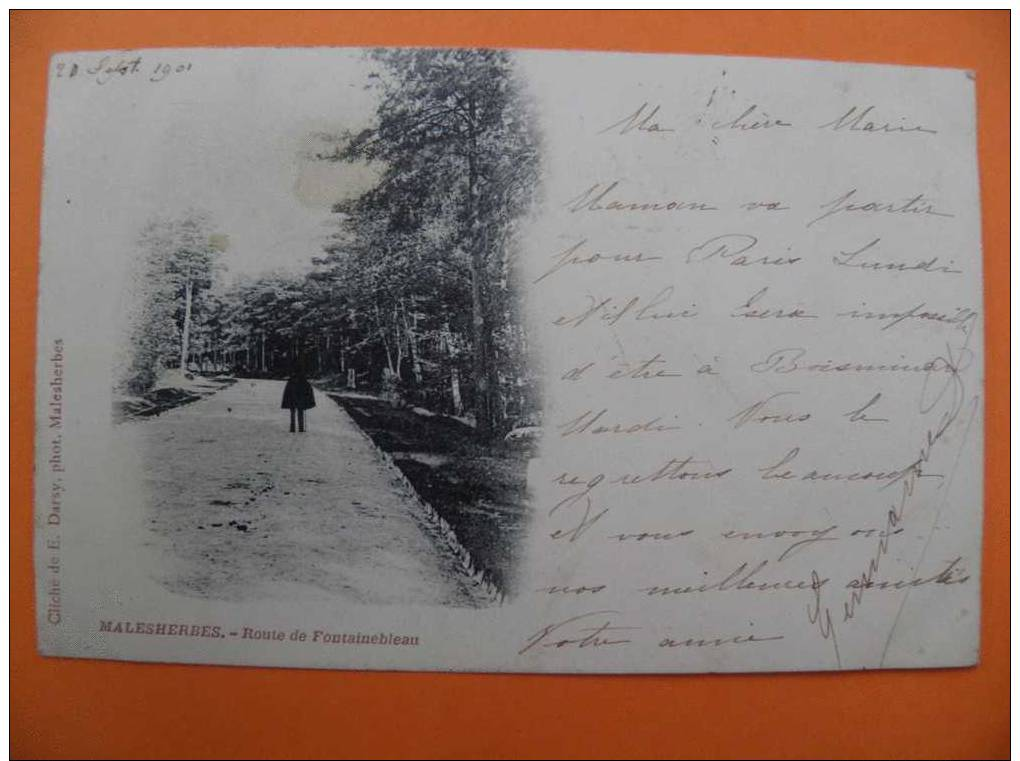 Sept. 1901
Ma chère Marie
Maman va partir
pour Paris Lundi
et il lui sera impossible
d'être à
Mardi. Nous le
regrettons beaucoup
et vous envoyons
nos meilleures amitiés
Votre amie
Germaine
Cliché de E. Darsy, phot. Malesherbes
MALESHERBES. - Route de Fontainebleau